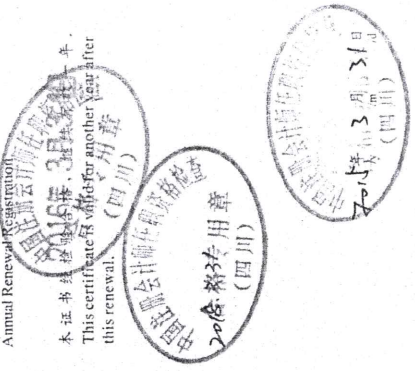 Annual Renewal Registration
本证书经检验合格，继续有效一年．
This certificate is valid for another year after
this renewal.
中国注册会计师任职资格检查
专用章
（四川）
中国注册会计师任职资格检查
专用章
（四川）
2015年3月31日
（四川）